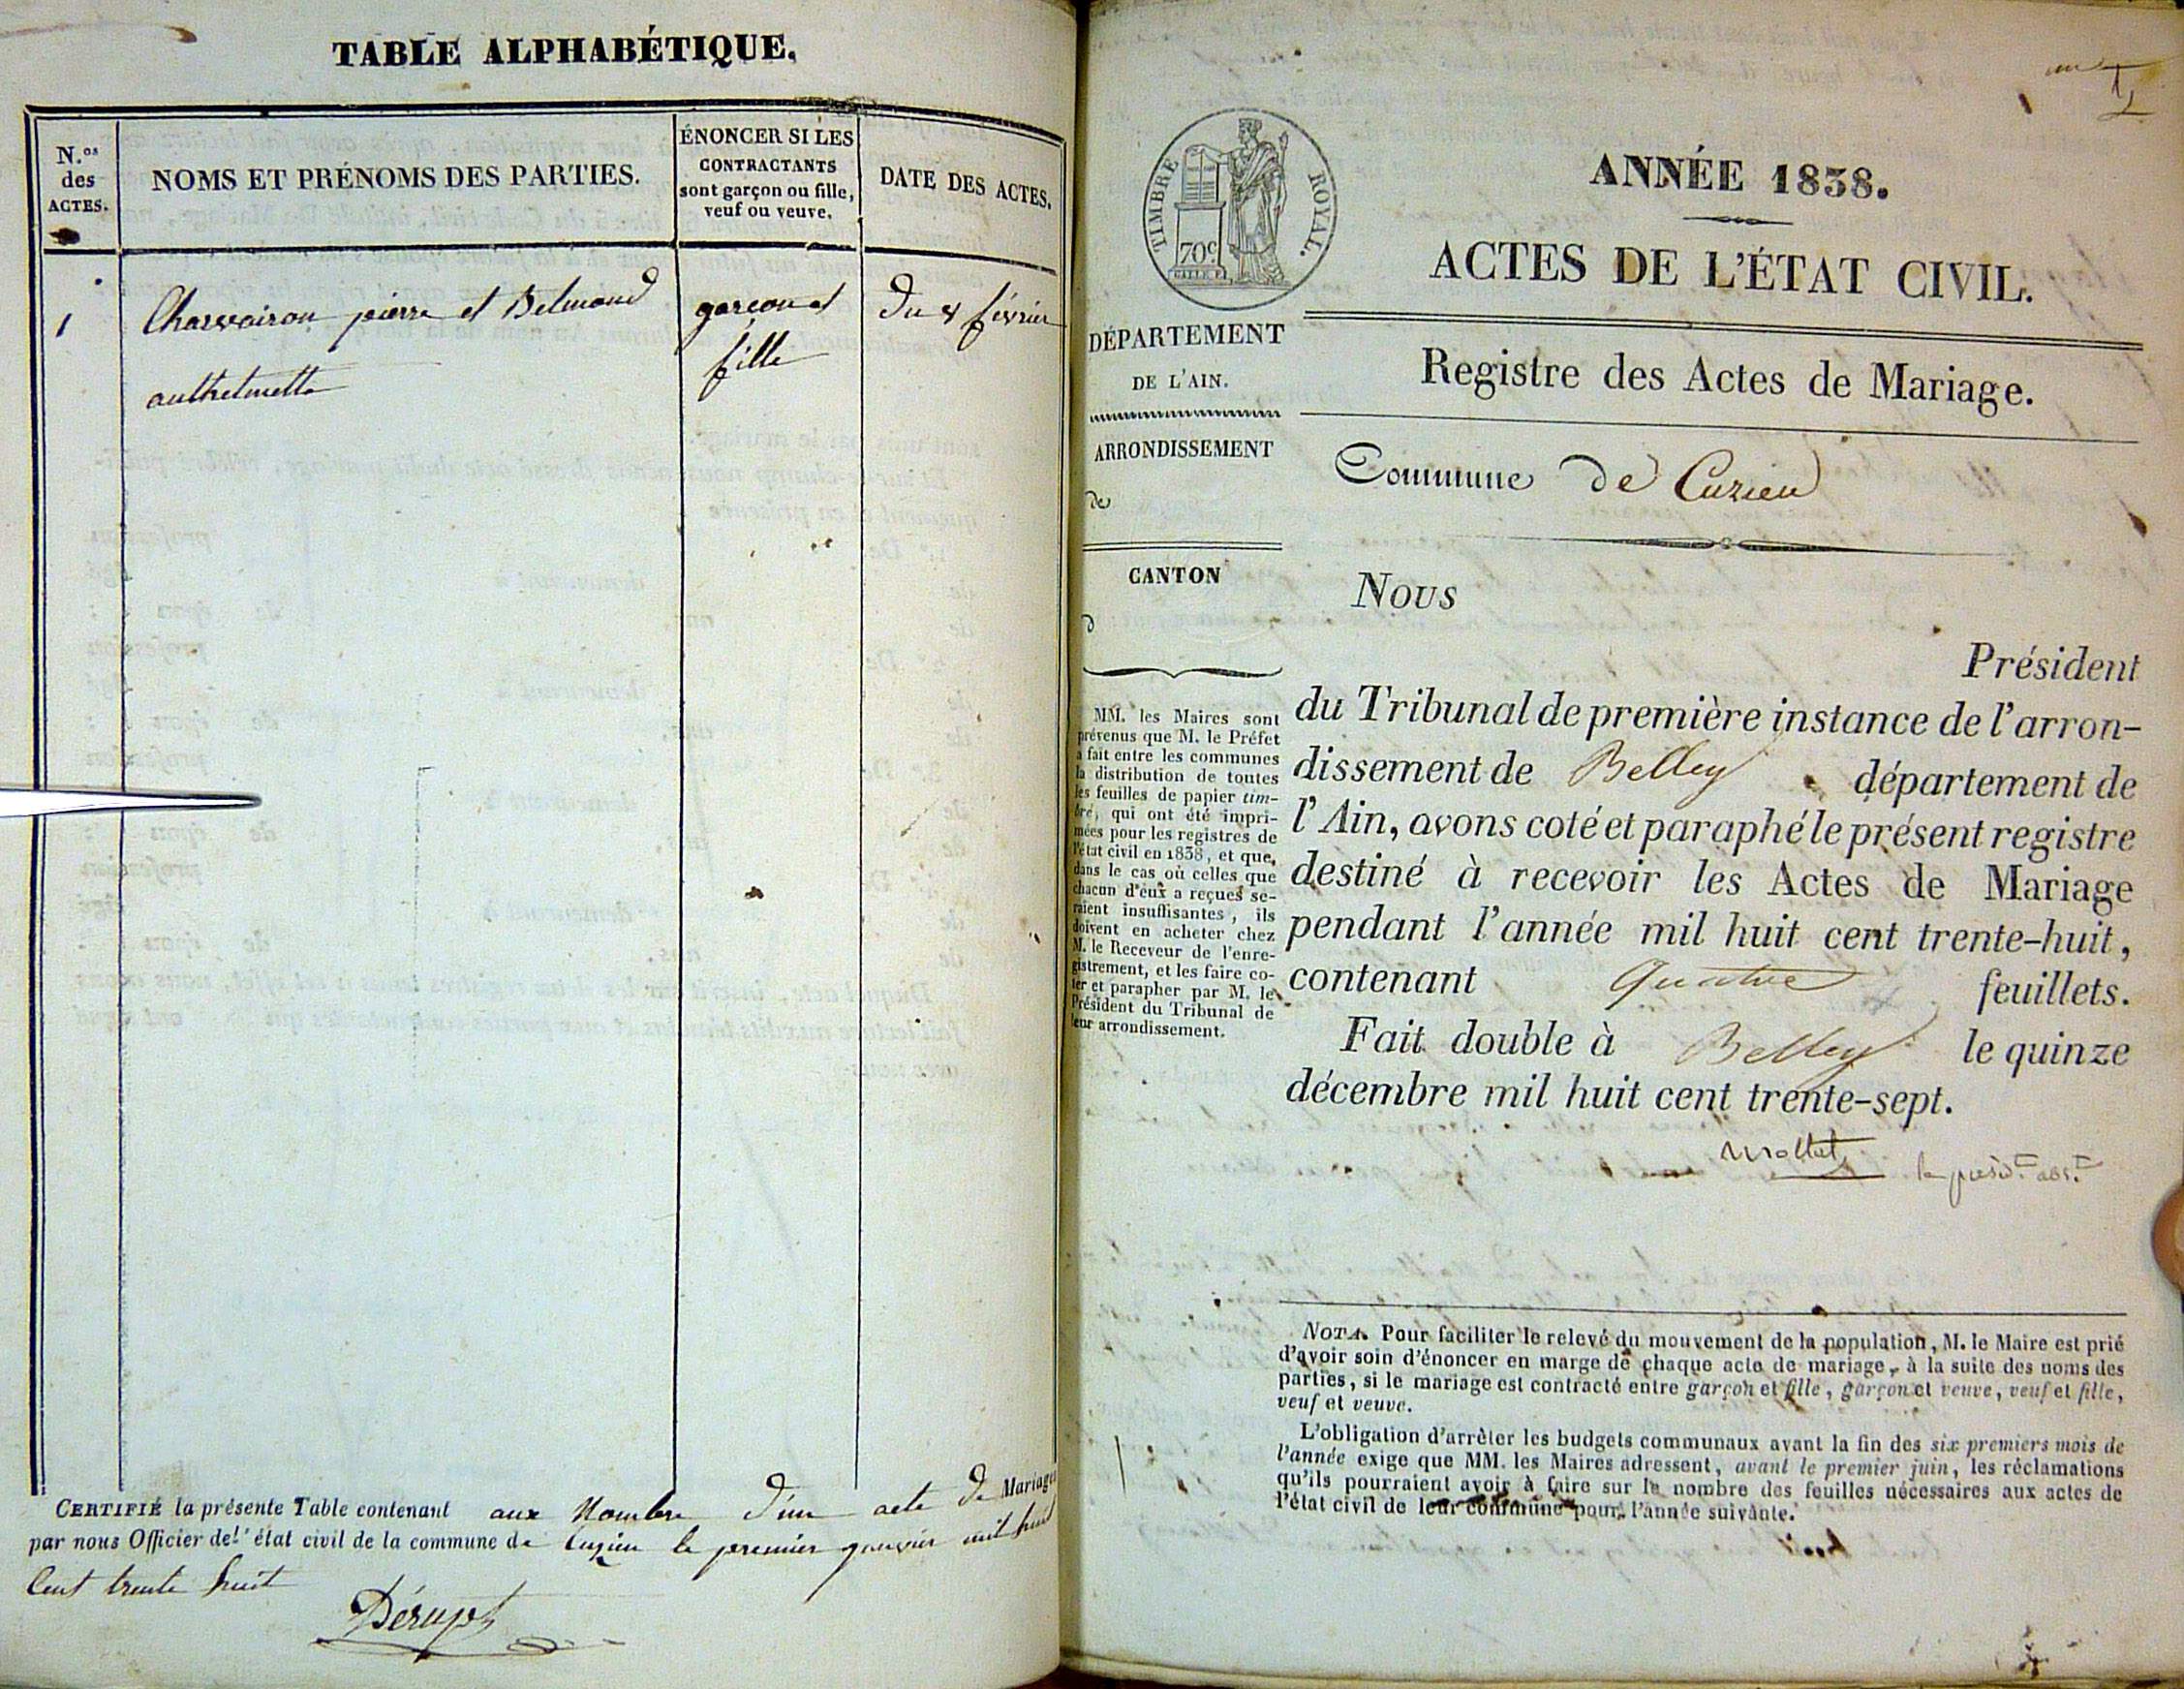 TABLE ALPHABÉTIQUE.
N.os
des
ACTES.
NOMS ET PRÉNOMS DES PARTIES.
ÉNONCER SI LES
CONTRACTANTS
sont garçon ou fille,
veuf ou veuve.
DATE DES ACTES.
1 Charvairon pierre et Belmond garçon et du 4 février
anthelmette fille
CERTIFIÉ la présente Table contenant aux Nombre d'un acte de Mariages
par nous Officier de l'état civil de la commune de Cuzieu le premier janvier mil huit
Cent trente huit
ANNÉE 1838.
TIMBRE ROYAL.
70c
ACTES DE L'ÉTAT CIVIL.
DÉPARTEMENT
DE L'AIN.
Registre des Actes de Mariage.
ARRONDISSEMENT
de
Commune de Cuzieu
CANTON
d
MM. les Maires sont
prévenus que M. le Préfet
a fait entre les communes
la distribution de toutes
les feuilles de papier tim-
bré, qui ont été impri-
mées pour les registres de
l'état civil en 1838, et que,
dans le cas où celles que
chacun d'eux a reçues se-
raient insuffisantes, ils
doivent en acheter chez
M. le Receveur de l'enre-
gistrement, et les faire co-
ter et parapher par M. le
Président du Tribunal de
leur arrondissement.
Nous
Président
du Tribunal de première instance de l'arron-
dissement de Belley département de
l'Ain, avons coté et paraphé le présent registre
destiné à recevoir les Actes de Mariage
pendant l'année mil huit cent trente-huit,
contenant quatre feuillets.
Fait double à Belley le quinze
décembre mil huit cent trente-sept.
Mollet le présidt abst
NOTA. Pour faciliter le relevé du mouvement de la population, M. le Maire est prié
d'avoir soin d'énoncer en marge de chaque acte de mariage, à la suite des noms des
parties, si le mariage est contracté entre garçon et fille, garçon et veuve, veuf et fille,
veuf et veuve.
L'obligation d'arrêter les budgets communaux avant la fin des six premiers mois de
l'année exige que MM. les Maires adressent, avant le premier juin, les réclamations
qu'ils pourraient avoir à faire sur le nombre des feuilles nécessaires aux actes de
l'état civil de leur commune pour l'année suivante.